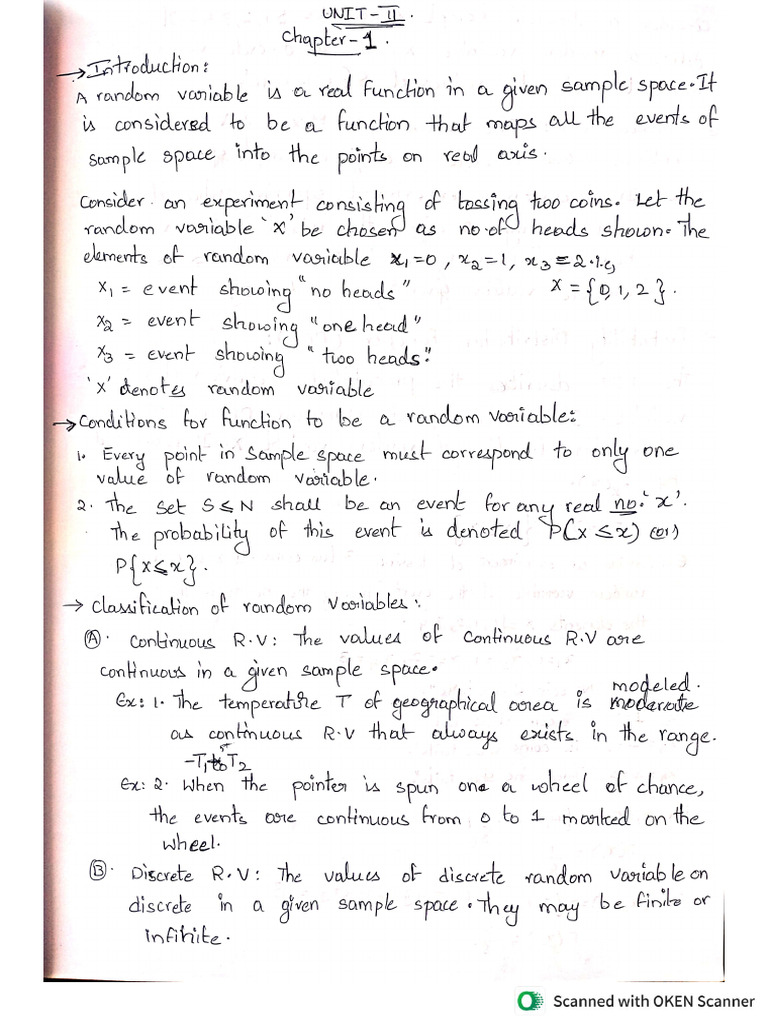 UNIT-II.
Chapter-1.
→Introduction:
A random variable is a real function in a given sample space. It
is considered to be a function that maps all the events of
sample space into the points on real axis.
Consider an experiment consisting of tossing two coins. Let the
random variable 'X' be chosen as no.of heads shown. The
elements of random variable x₁=0, x₂=1, x₃=2. i.e,
x₁ = event showing "no heads" X = {0,1,2}.
x₂ = event showing "one head"
x₃ = event showing "two heads".
'X' denotes random variable
→Conditions for function to be a random variable:
1. Every point in Sample space must correspond to only one
value of random variable.
2. The set S≤N shall be an event for any real no. 'x'.
The probability of this event is denoted P(X≤x) (or)
P{X≤x}.
→ Classification of random Variables:
Ⓐ. Continuous R.V: The values of continuous R.V are
continuous in a given sample space.
Ex: 1. The temperature T of geographical area is modeled.
as continuous R.V that always exists in the range.
-T₁ to T₂
Ex: 2. When the pointer is spun one a wheel of chance,
the events are continuous from 0 to 1 marked on the
wheel.
Ⓑ. Discrete R.V: The values of discrete random variable on
discrete in a given sample space. They may be finite or
infinite.
Scanned with OKEN Scanner